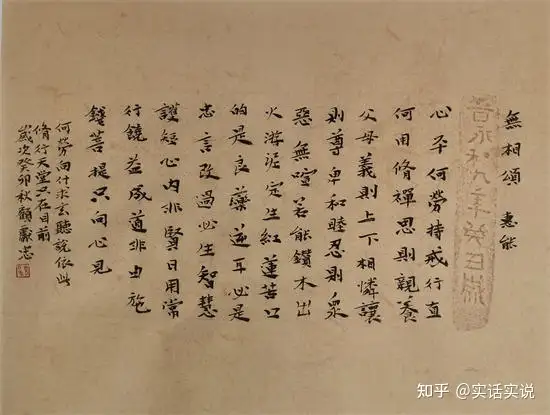 無相頌 惠能
晉永和九年
心平何勞持戒行直
何用脩禪恩則親養
父母義則上下相憐讓
則尊卑和睦忍則衆
惡無喧若能鑽木出
火淤泥定生紅蓮苦口
的是良藥逆耳必是
忠言改過必生智慧
護短心內非賢日用常
行饒益成道非由施
錢菩提只向心覓
何勞向外求玄聽說依此
脩行天堂只在目前
歲次癸卯秋顧
知乎 @实话实说